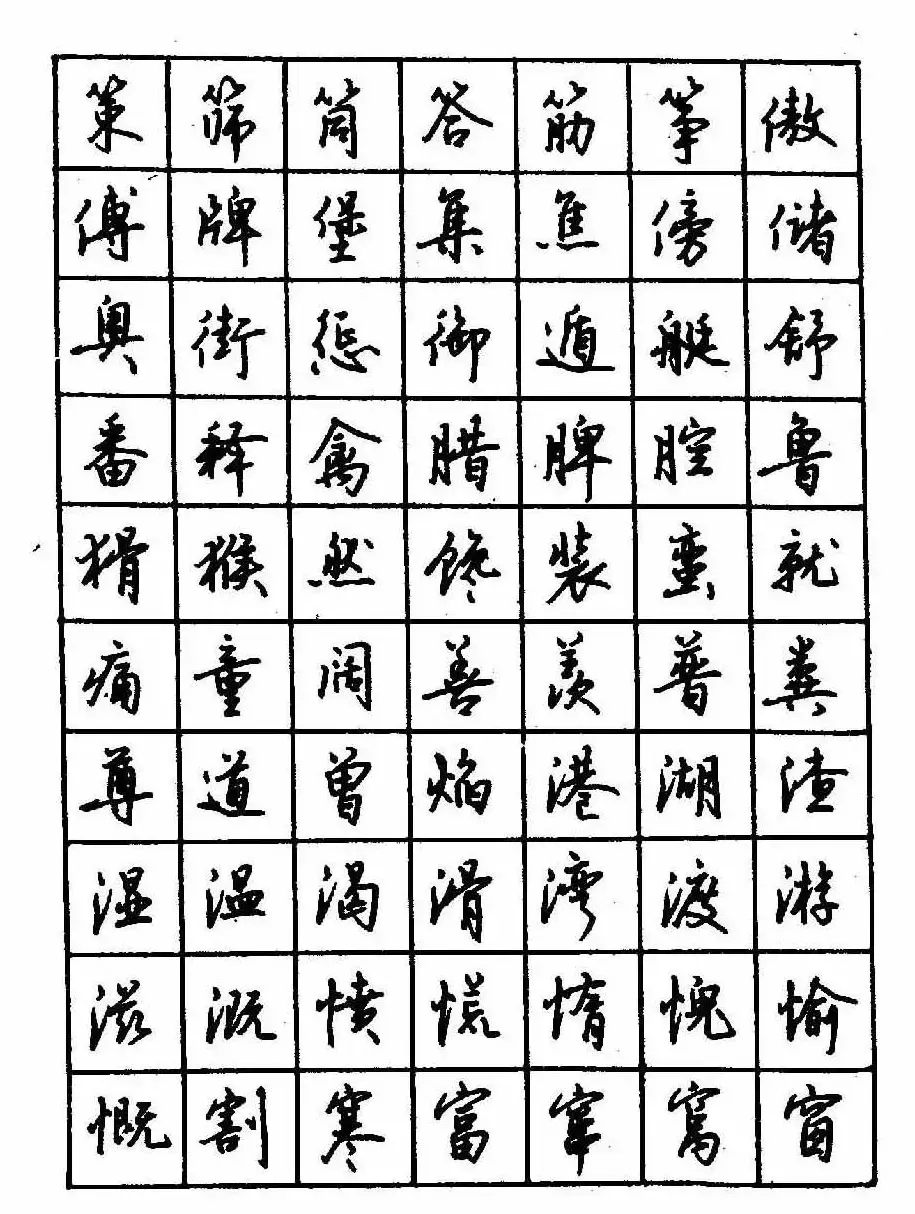 策筛筒答筋筝傲
傅牌堡集焦傍储
奥街惩御遁艇舒
番释禽腊脾腔鲁
猾猴然馋装蛮就
痛童阔善羡普粪
尊道曾焰港湖渣
湿温渴滑湾渡游
滋溉愤慌惰愧愉
慨割寒富窜窝窗